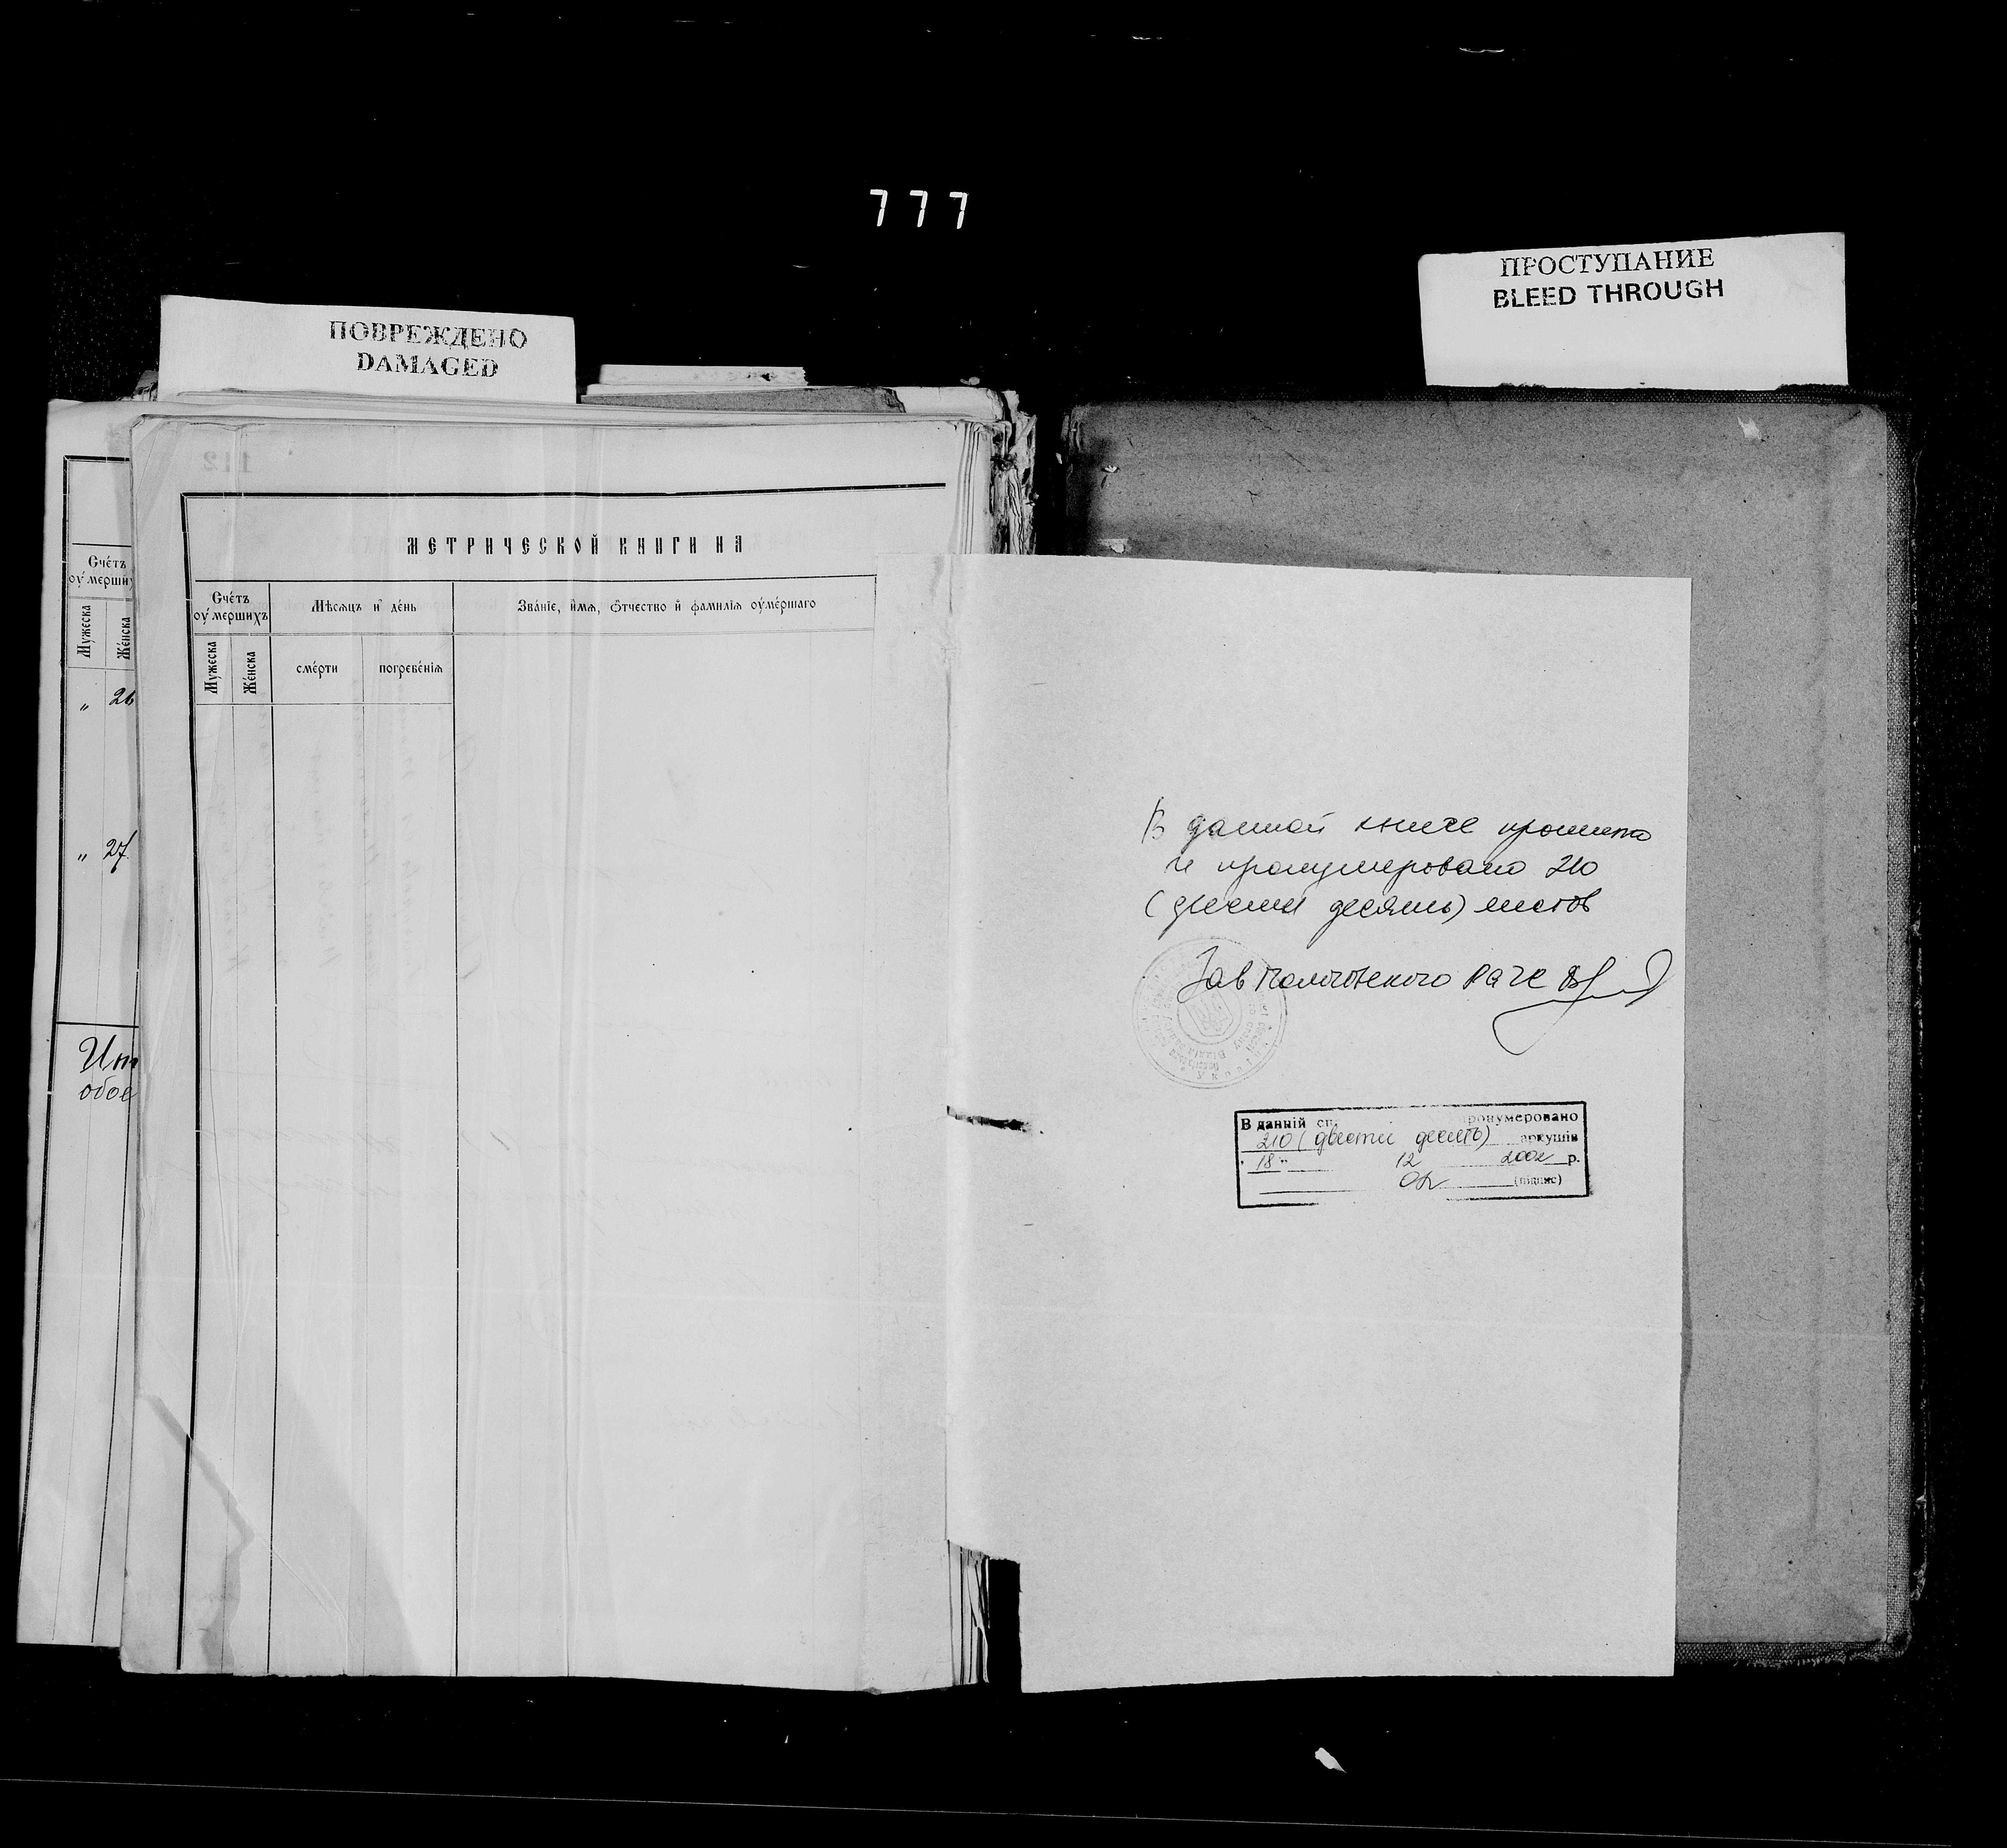 777
ПОВРЕЖДЕНО
DAMAGED
ПРОСТУПАНИЕ
BLEED THROUGH
Счéтъ
оу҆мерши
Мужеска
Жéнска
„ 26
„ 27.
Ит
обое
112
МЕТРИЧЕСКОЙ КНИГИ НА
Счéтъ
оу҆мершихъ
Мѣсѧцъ и҆ дéнь
Звáнїе, и҆́мѧ, ѻ҆́тчество и҆ фамилїѧ оу҆мéршаго
Мужеска
Жéнска
смéрти
погребéнїѧ
В данной книге прошито
и пронумеровано 210
(двести десять) листов
Зав Пологовского РАГС
В данній сп. пронумеровано
210 (двести десять) аркушів
" 18 " 12 2002 р.
(підпис)